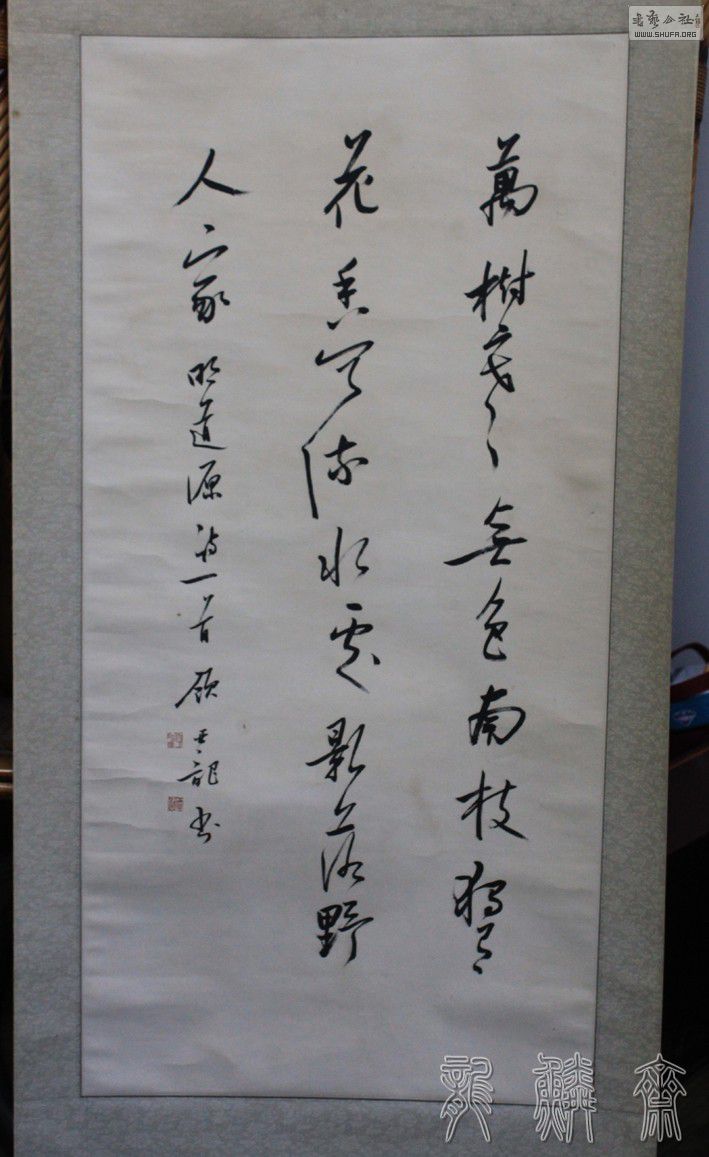 萬樹寒無色南枝獨有
花香聞流水處影落野
人家 明道源詩一首 顧亞龍書
WWW.SHUFA.ORG
龍麟齋